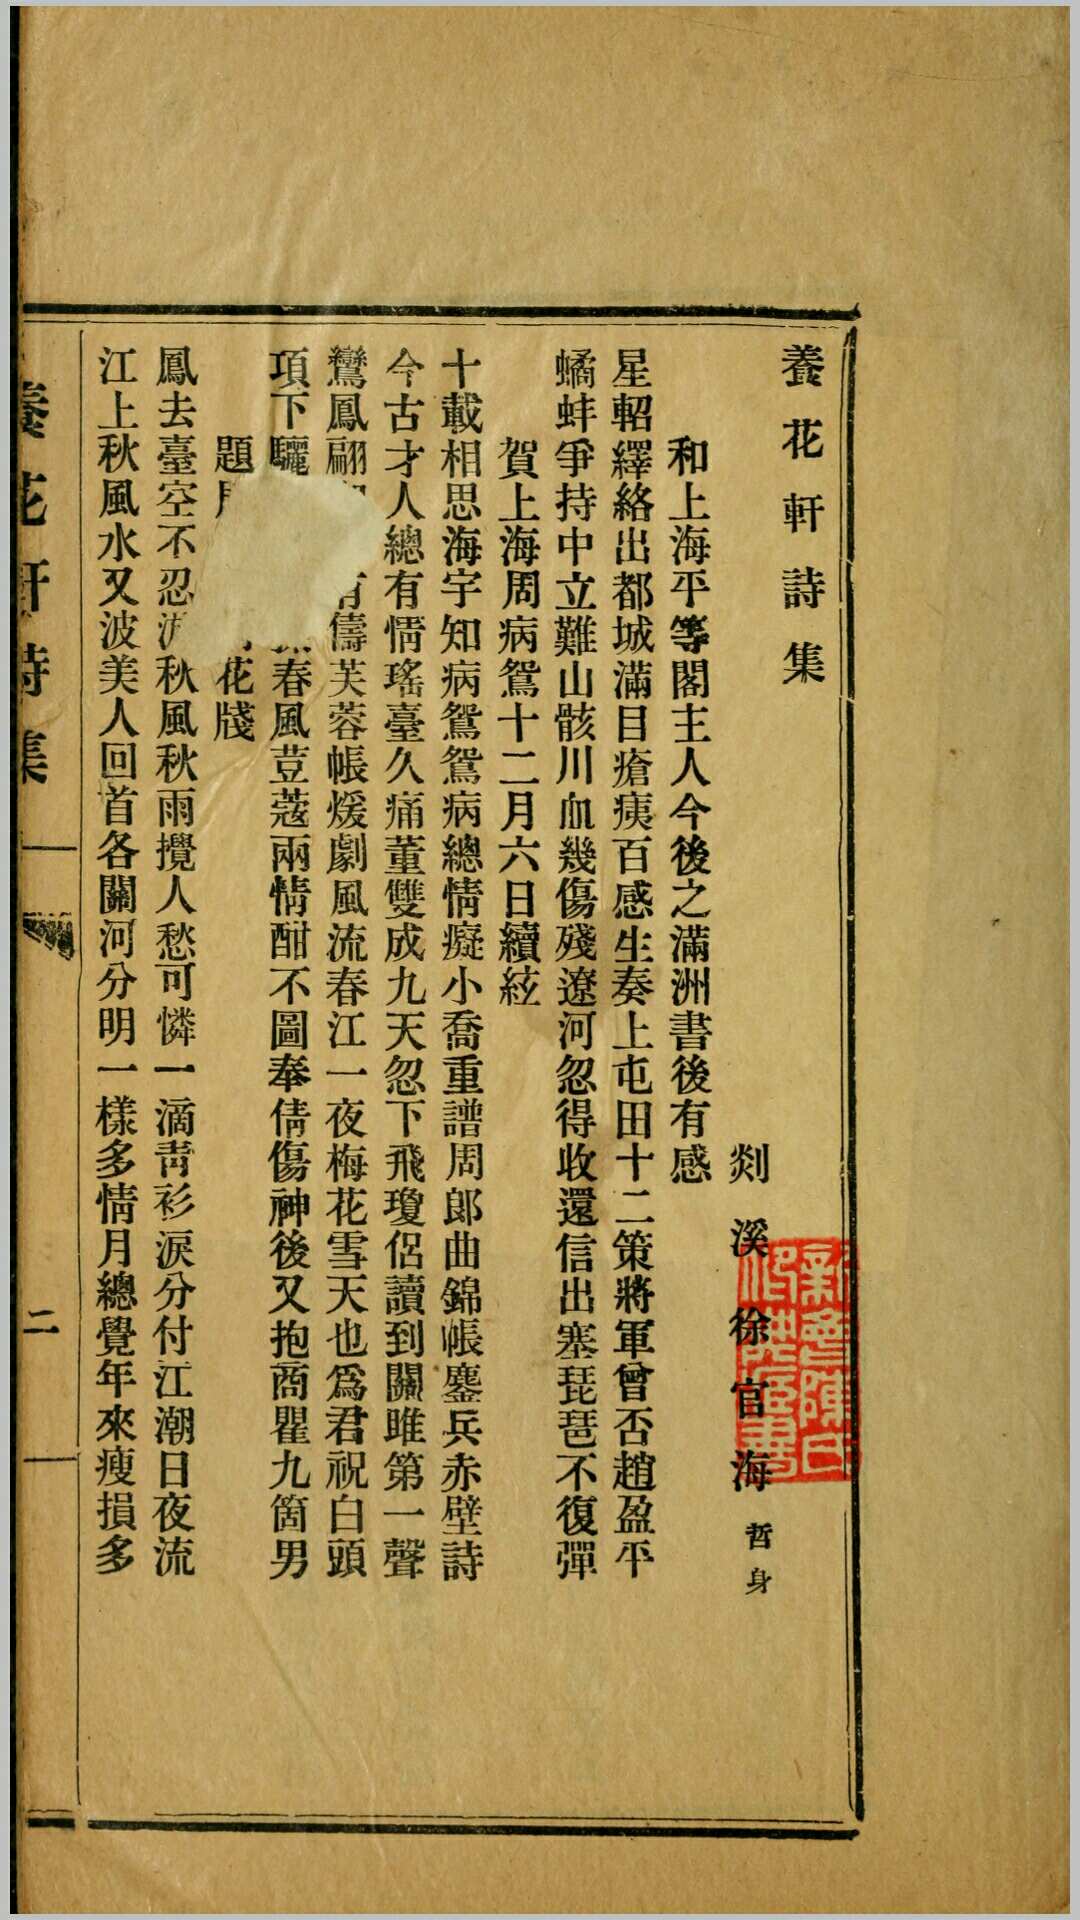 養花軒詩集
剡溪徐官海哲身
和上海平等閣主人今後之滿洲書後有感
星軺繹絡出都城滿目瘡痍百感生奏上屯田十二策將軍曾否趙盈平
蟠蚌爭持中立難山骸川血幾傷殘遼河忽得收還信出塞琵琶不復彈
賀上海周病鴛十二月六日續絃
十載相思海宇知病鴛鴛病總情癡小喬重譜周郞曲錦帳鏖兵赤壁詩
今古才人總有情瑤臺久痛董雙成九天忽下飛瓊侶讀到關雎第一聲
鸞鳳翩有儔芙蓉帳煖劇風流春江一夜梅花雪天也爲君祝白頭
項下驪春風荳蔻兩情酣不圖奉倩傷神後又抱商瞿九箇男
題花牋
鳳去臺空不忍秋風秋雨攪人愁可憐一滴靑衫淚分付江潮日夜流
江上秋風水又波美人回首各關河分明一樣多情月總覺年來瘦損多
養花軒詩集
二